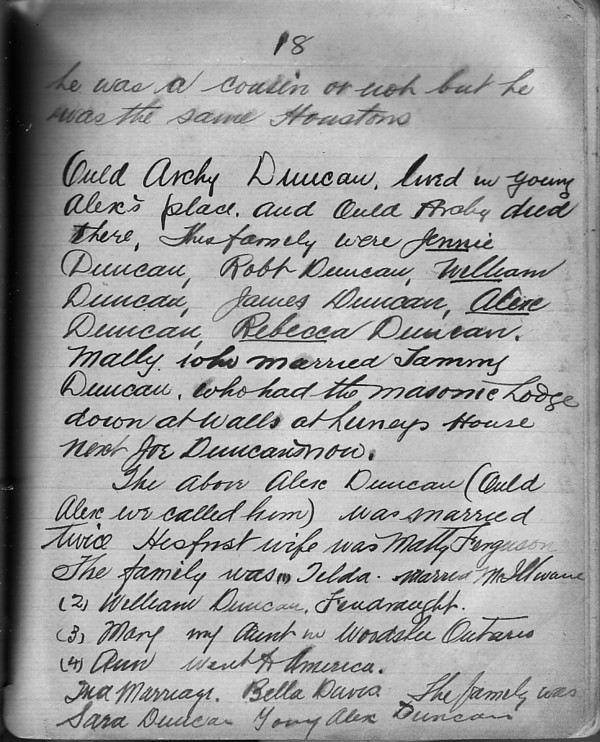 18
he was a cousin or not but he
was the same Houstons
Ould Archy Duncan, lived in young
Alex's place. and Ould Archy died
there, This family were Jennie
Duncan, Robt Duncan, William
Duncan, James Duncan, Alex
Duncan, Rebecca Duncan.
Mally. who married Tammy
Duncan. who had the masonic Lodge
down at Walls at House
next Joe Duncans now.
The above Alex Duncan (Ould
Alex we called him) was married
twice His first wife was Matty Ferguson
The family was (1) Tilda. married McIllwane
(2) William Duncan, Fendraught.
(3) Mary my Aunt in Ontario
(4) Ann went to America.
2nd Marriage. Bella Davis The family was
Sara Duncan Young Alex Duncan